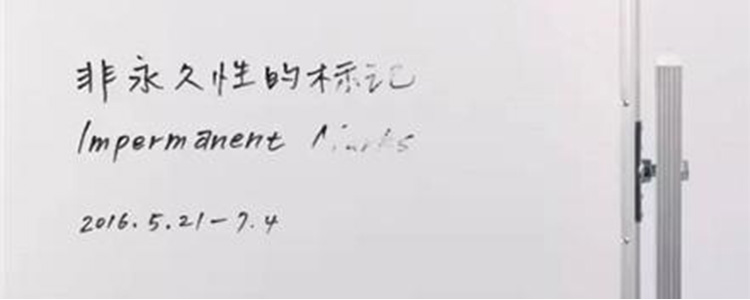 非永久性的标记
Impermanent Marks
2016.5.21-7.4